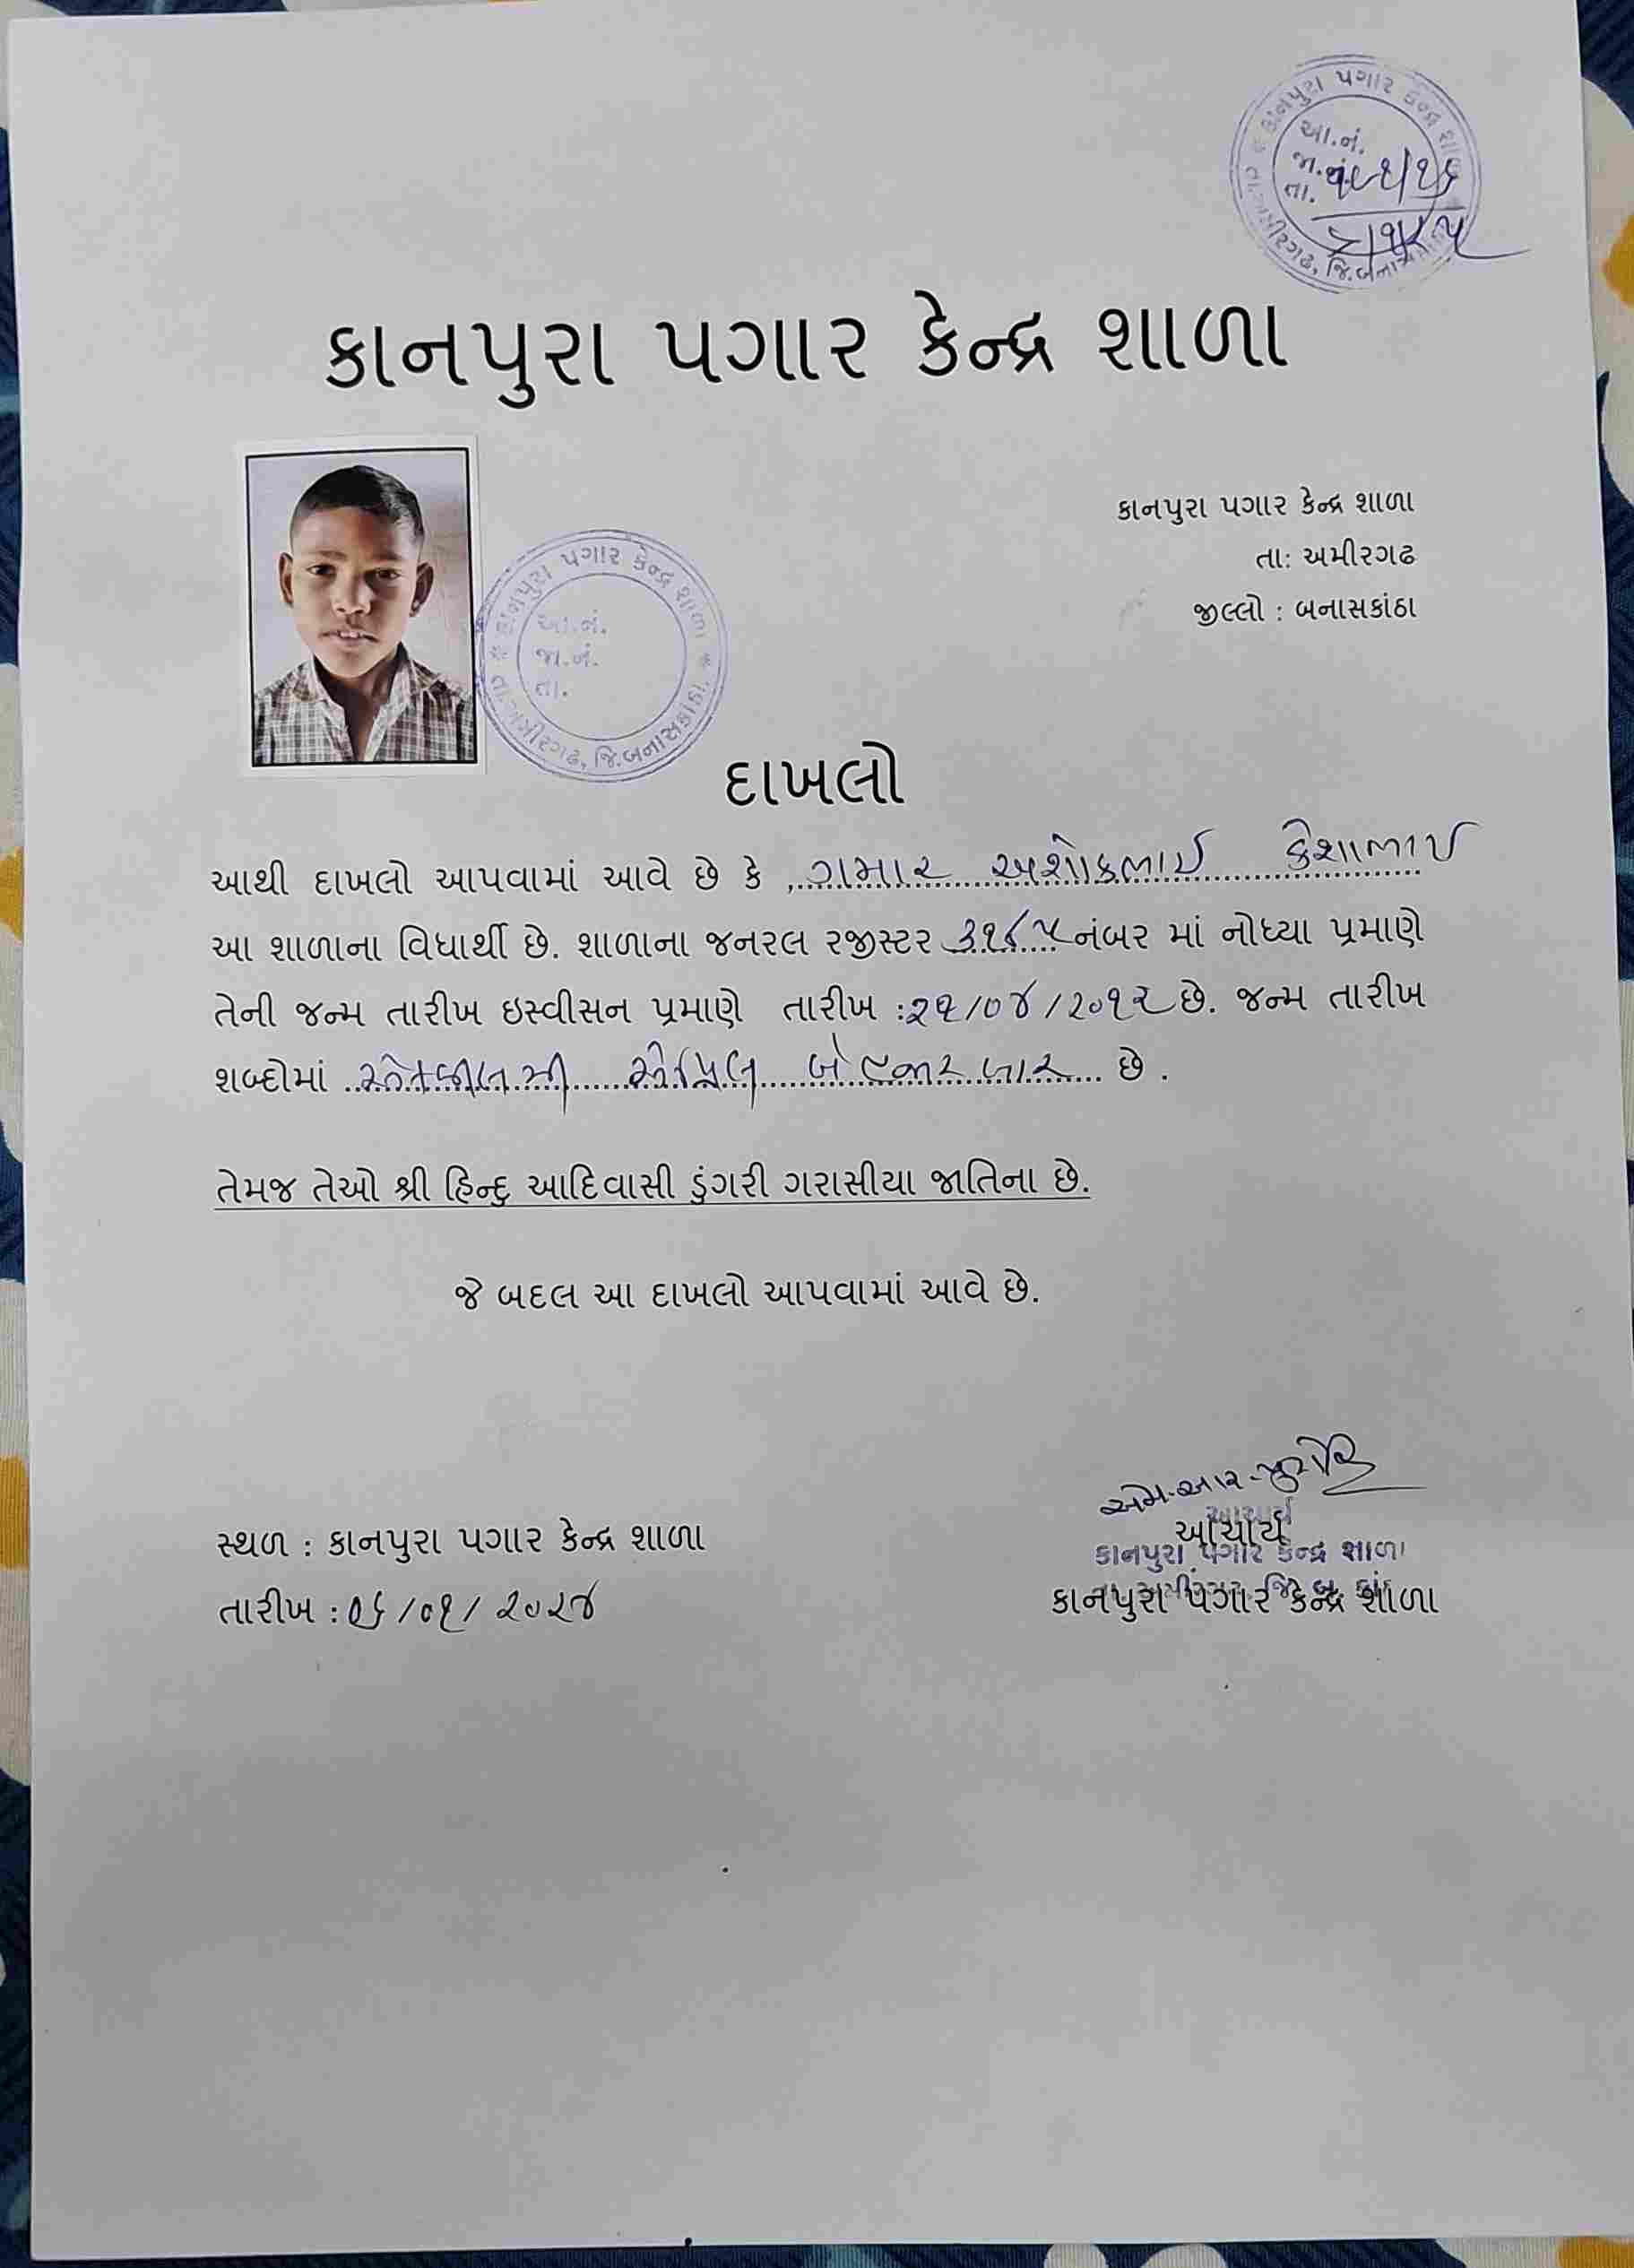 કાનપુરા પગાર કેન્દ્ર શાળા
આ.નં.
જા.નં.
તા.
તા.અમીરગઢ, જિ.બનાસકાંઠા
કાનપુરા પગાર કેન્દ્ર શાળા
કાનપુરા પગાર કેન્દ્ર શાળા
તા: અમીરગઢ
જીલ્લો : બનાસકાંઠા
* કાનપુરા પગાર કેન્દ્ર શાળા *
આ.નં.
જા.નં.
તા.
તા.અમીરગઢ, જિ.બનાસકાંઠા
દાખલો
આથી દાખલો આપવામાં આવે છે કે ,ગમાર અશોકભાઈ કેશાભાઈ
આ શાળાના વિધાર્થી છે. શાળાના જનરલ રજીસ્ટર ૩૧૮૫ નંબર માં નોધ્યા પ્રમાણે
તેની જન્મ તારીખ ઇસ્વીસન પ્રમાણે તારીખ : /૦૪/૨૦૧૨ છે. જન્મ તારીખ
શબ્દોમાં એપ્રિલ બે હજાર બાર છે .
તેમજ તેઓ શ્રી હિન્દુ આદિવાસી ડુંગરી ગરાસીયા જાતિના છે.
જે બદલ આ દાખલો આપવામાં આવે છે.
એમ.આર.પુરોહિ
આચાર્ય
આચાર્ય
કાનપુરા પગાર કેન્દ્ર શાળા
કાનપુરા પગાર કેન્દ્ર શાળા
સ્થળ : કાનપુરા પગાર કેન્દ્ર શાળા
તારીખ :૦૬/૦૧/૨૦૨૪